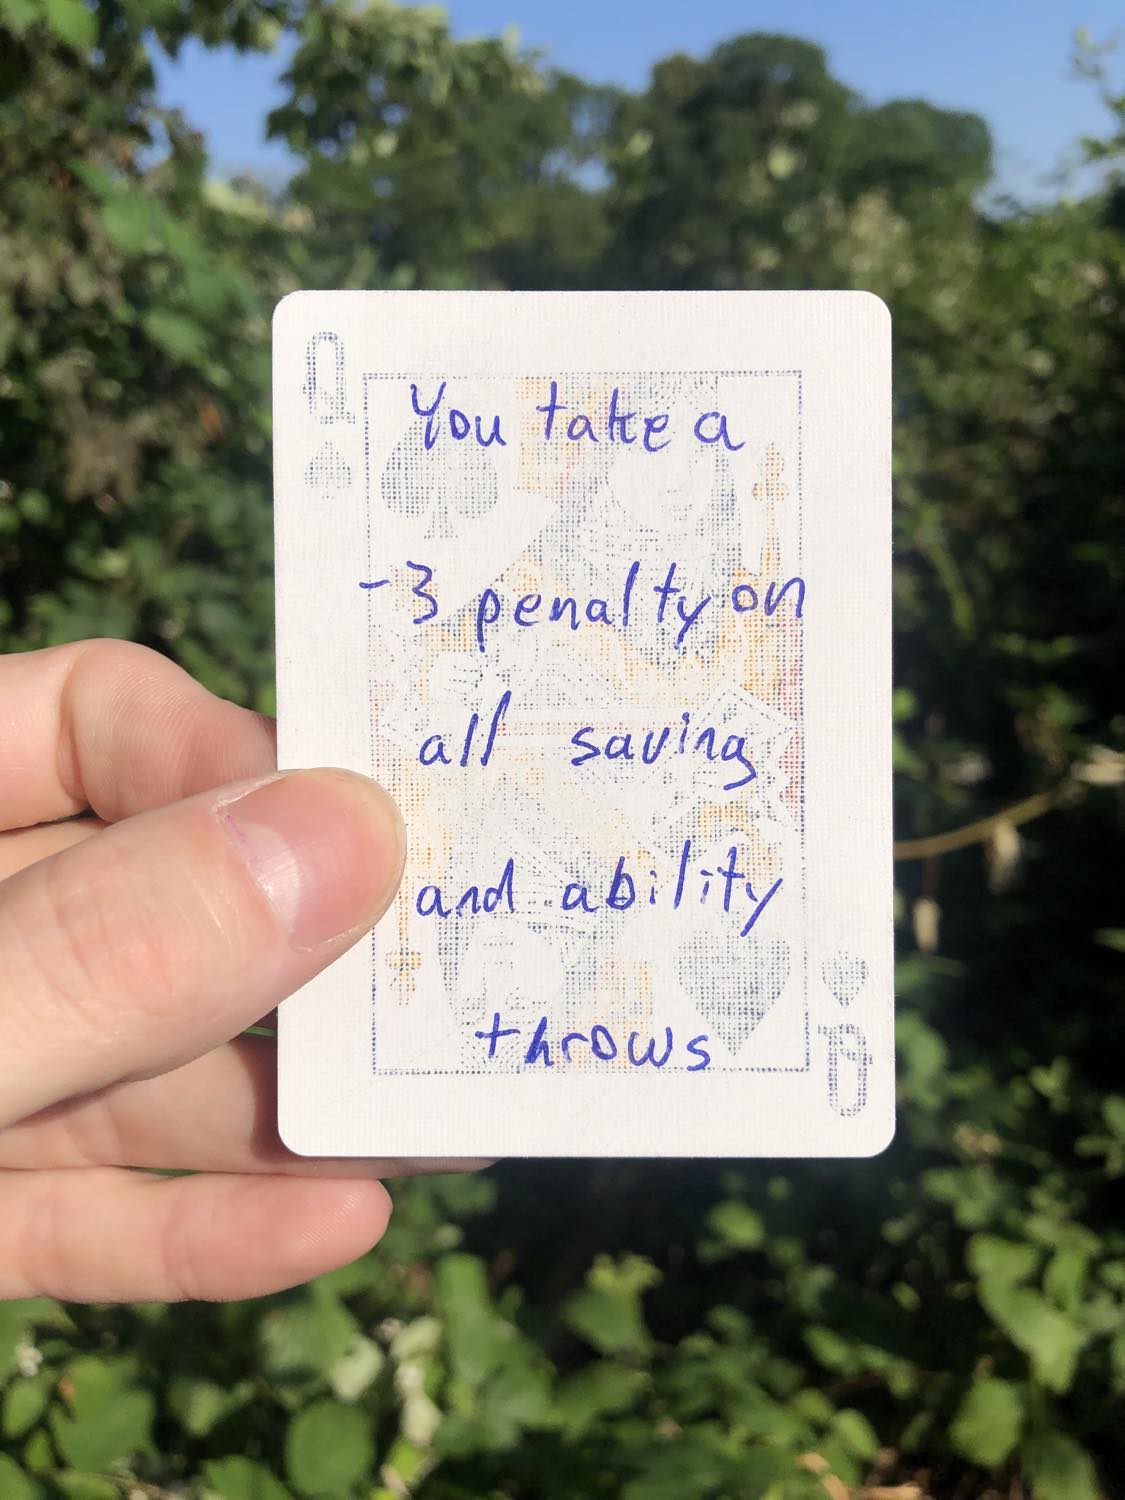 Q
You take a
-3 penalty on
all saving
and ability
throws
Q